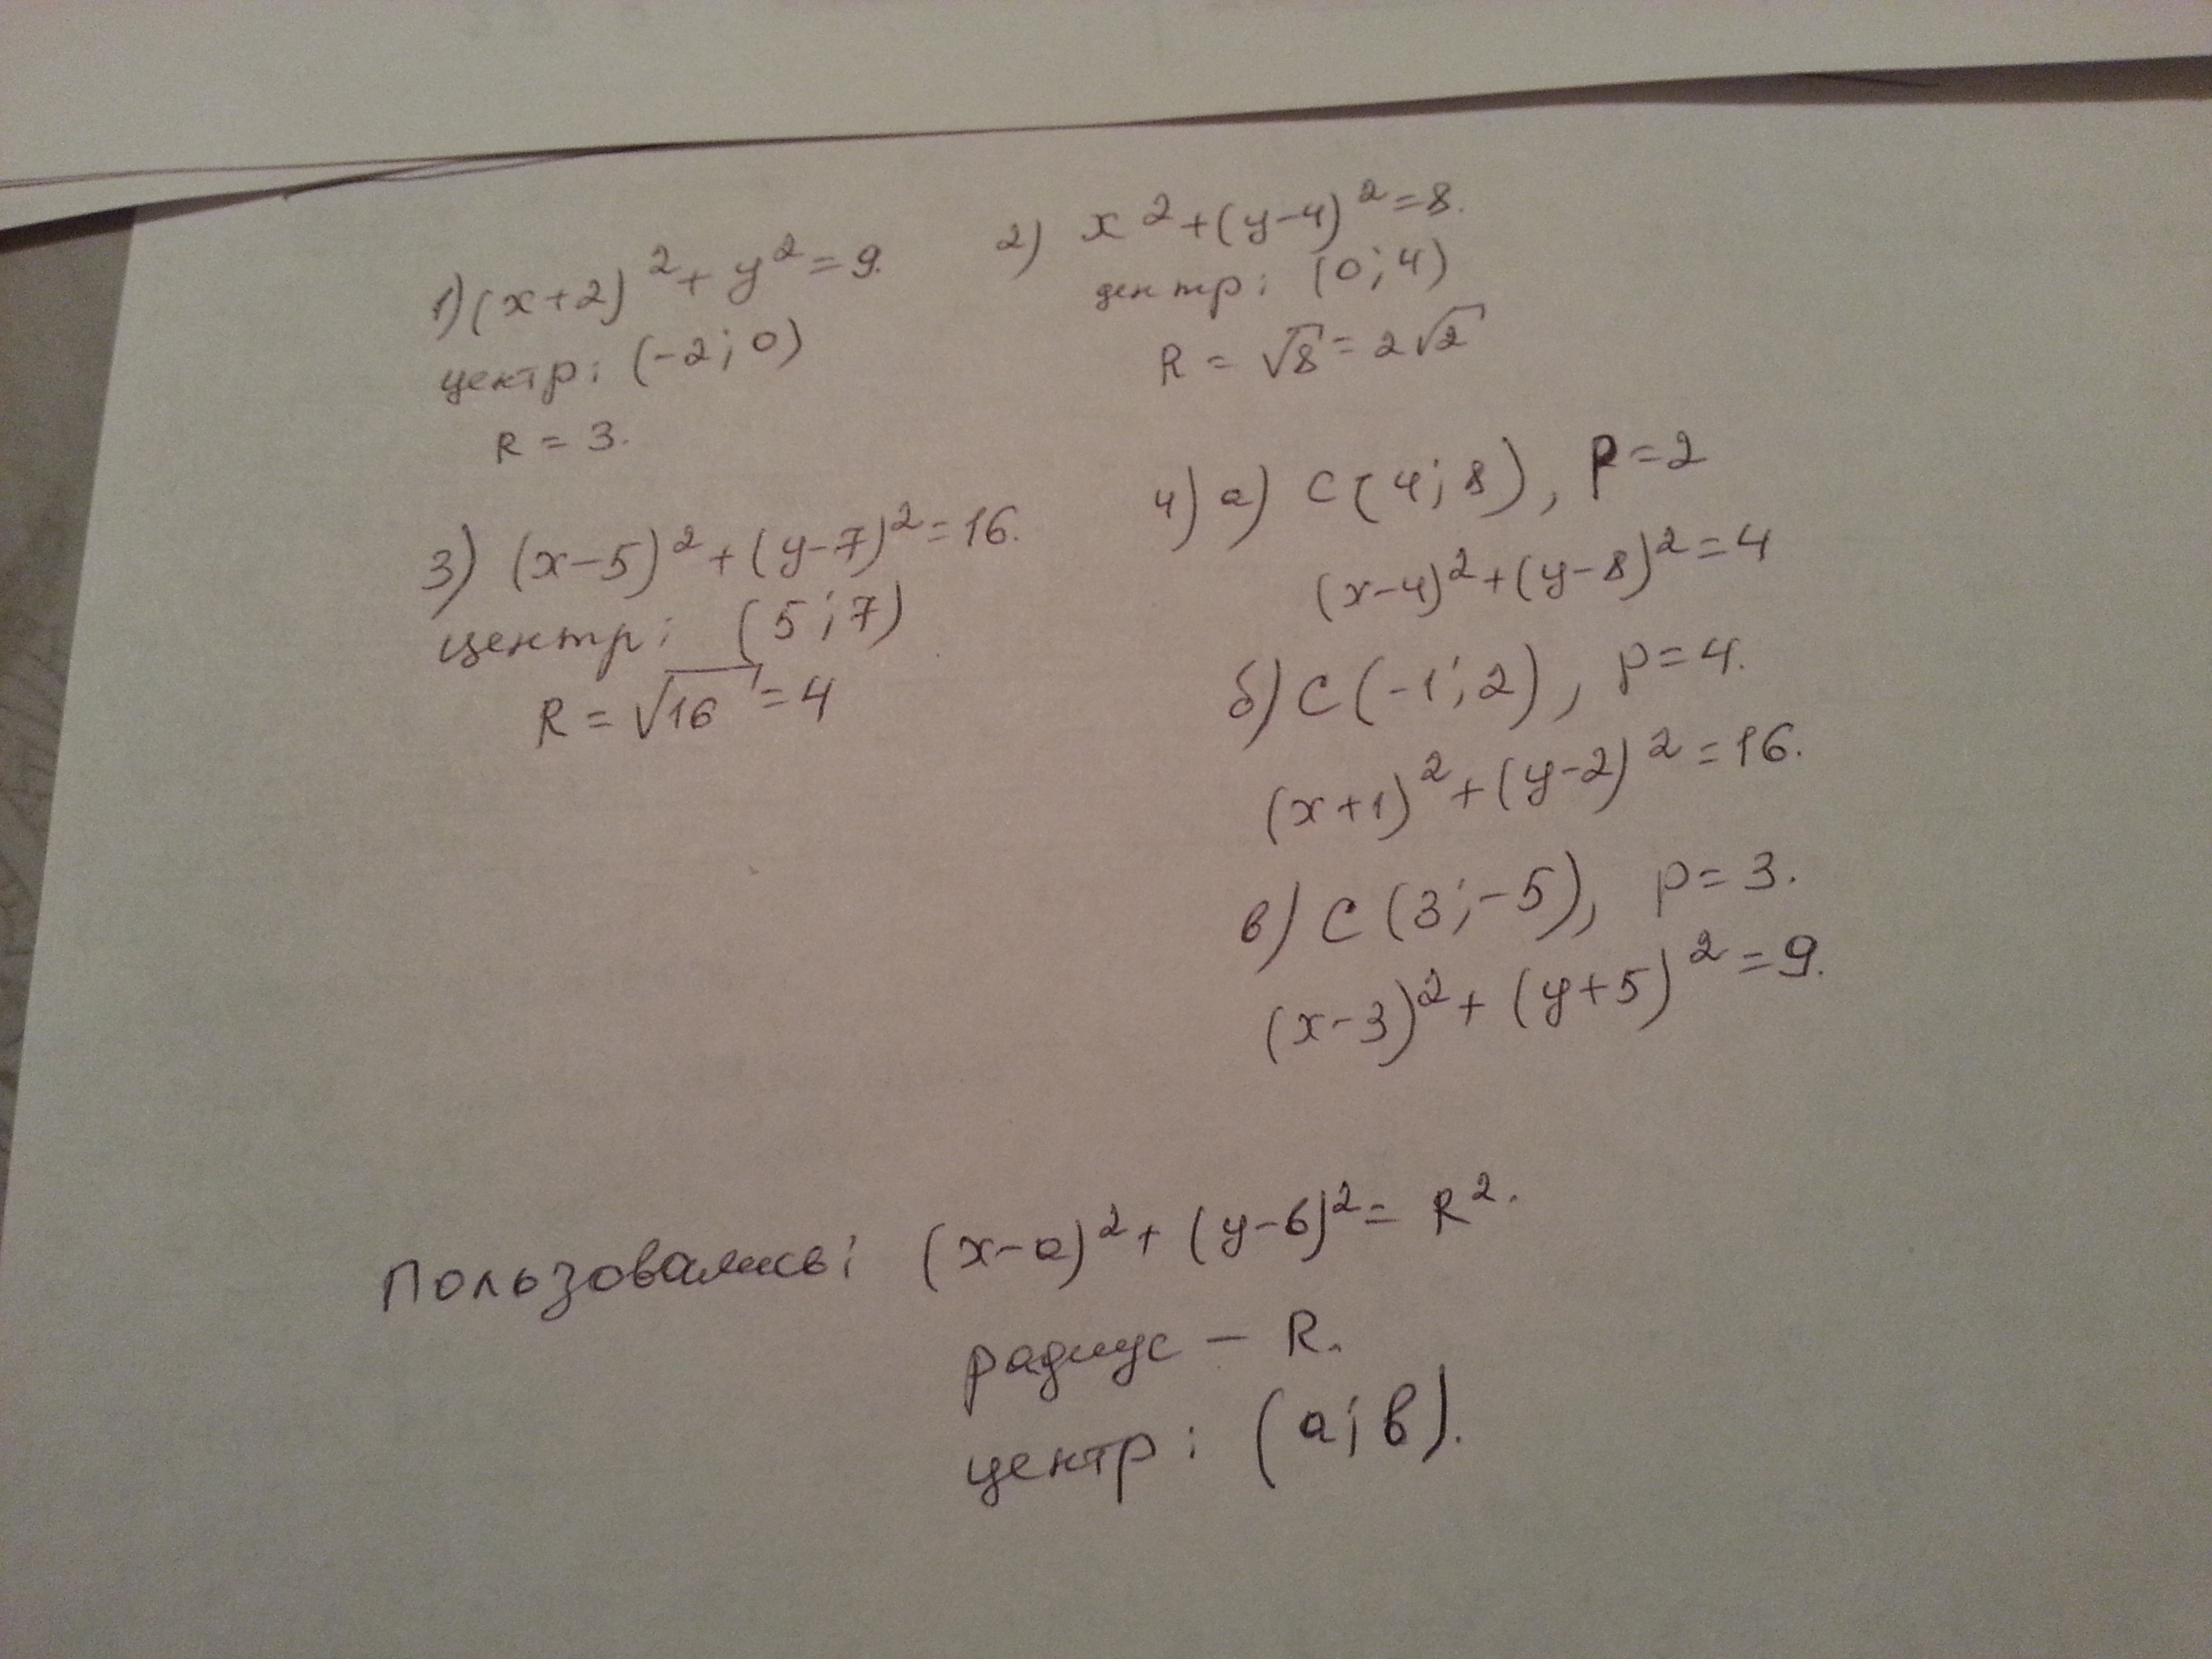 1) (x+2)² + y² = 9.
центр: (-2; 0)
R = 3.
2) x² + (y-4)² = 8.
центр: (0; 4)
R = √8 = 2√2
3) (x-5)² + (y-7)² = 16.
центр: (5; 7)
R = √16 = 4
4) а) C(4; 8), R = 2
(x-4)² + (y-8)² = 4
б) C(-1; 2), p = 4.
(x+1)² + (y-2)² = 16.
в) C(3; -5), p = 3.
(x-3)² + (y+5)² = 9.
Пользовались: (x-a)² + (y-b)² = R².
радиус — R.
центр: (a; b).